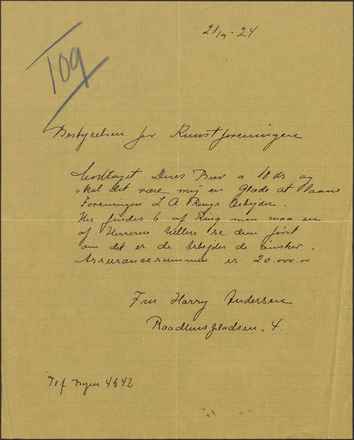 109
21/9-24
Bestyrelsen for Kunstforeningen
Modtaget Deres Brev a 10 ds og
skal det være mig en Glæde at laane
Foreningen L A Rings Arbejder.
Her findes 6 af Ring men maa en
af Herrerne ikke se dem først
om det er de Arbejder de ønsker.
Assurancesummen er 20.000.00
Fru Harry Andersen
Raadhuspladsen. 4.
Tef 4642